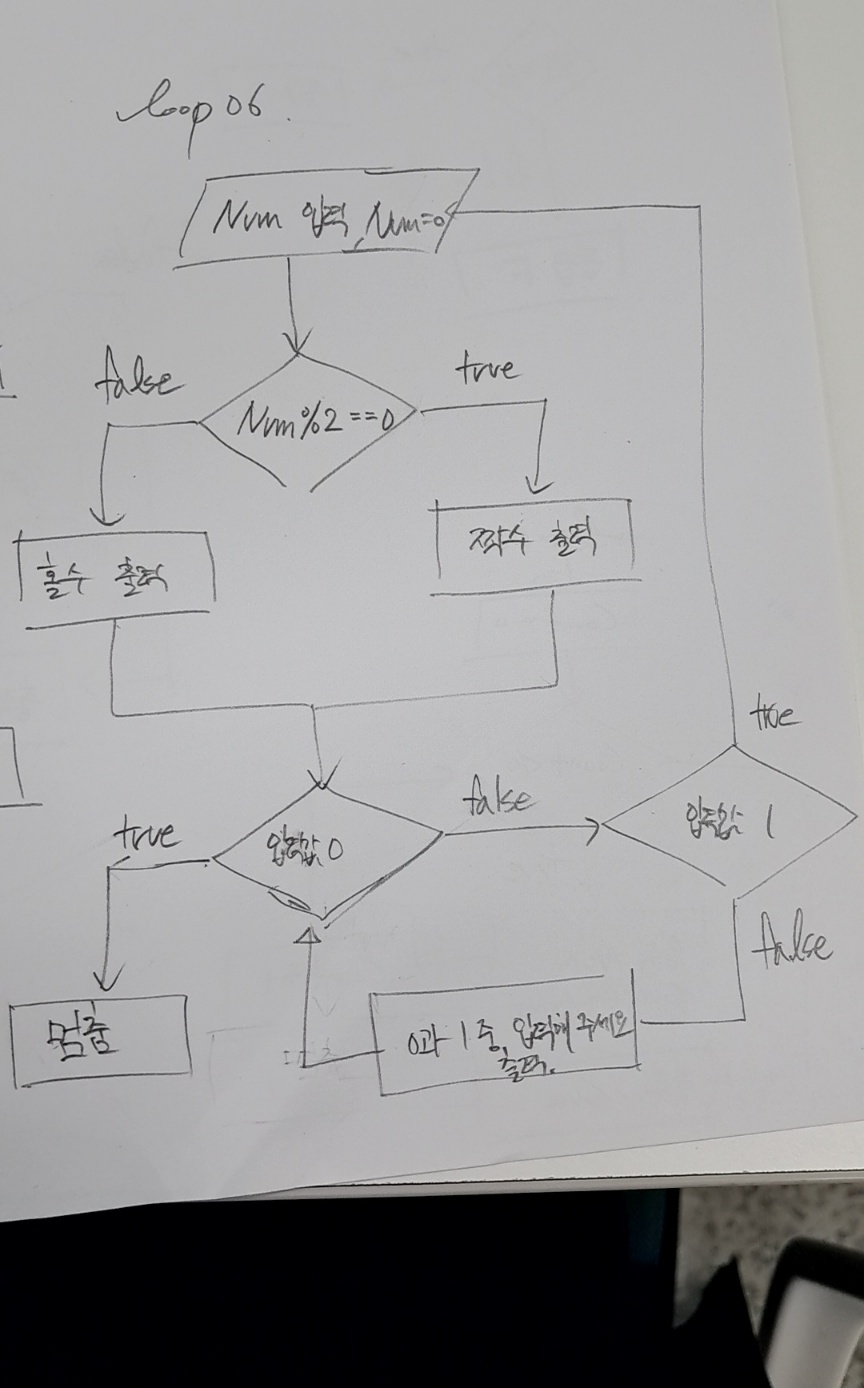 loop 06.
Num 입력, Num=0
false
true
Num%2==0
홀수 출력
짝수 출력
true
true
false
입력값 0
입력값 1
false
멈춤
0과 1 중, 입력해 주세요
출력.